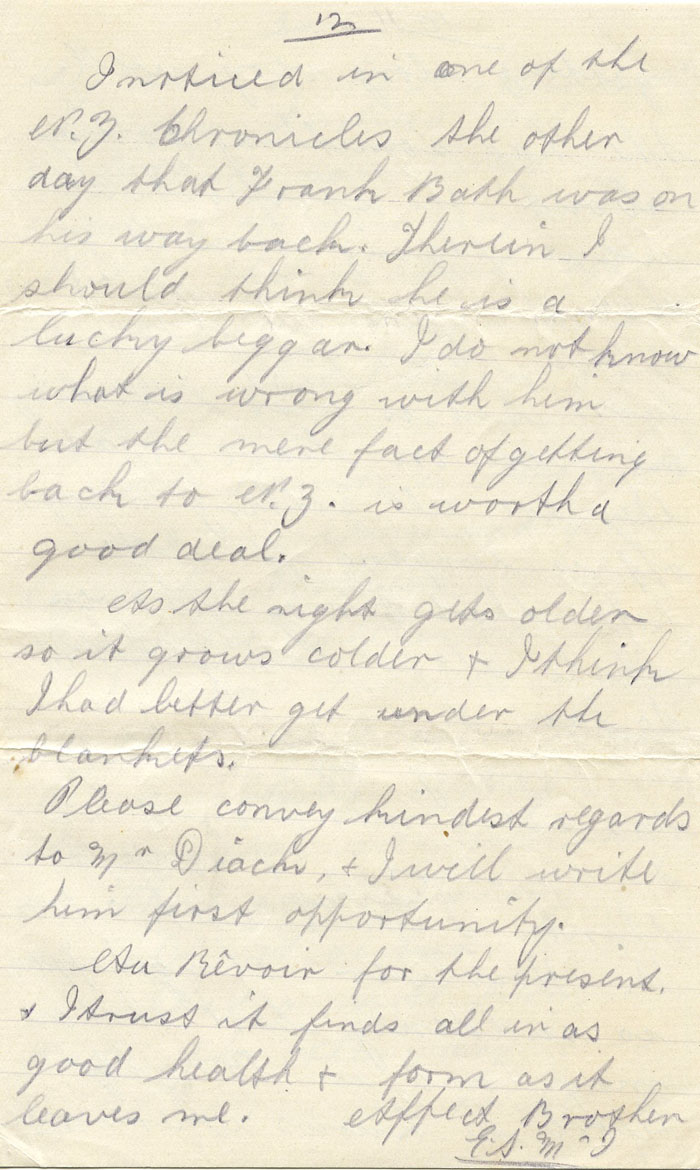 12
I noticed in one of the
N.Z. Chronicles the other
day that Frank Bath was on
his way back. Therein I
should think he is a
lucky beggar. I do not know
what is wrong with him
but the mere fact of getting
back to N.Z. is worth a
good deal.
As the night gets older
so it grows colder & I think
I had better get under the
blankets.
Please convey kindest regards
to Mr Diack, & I will write
him first opportunity.
Au Rêvoir for the present.
& I trust it finds all in as
good health & form as it
leaves me. Affect Brother